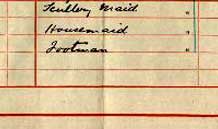 Scullery Maid "
Housemaid "
Footman "